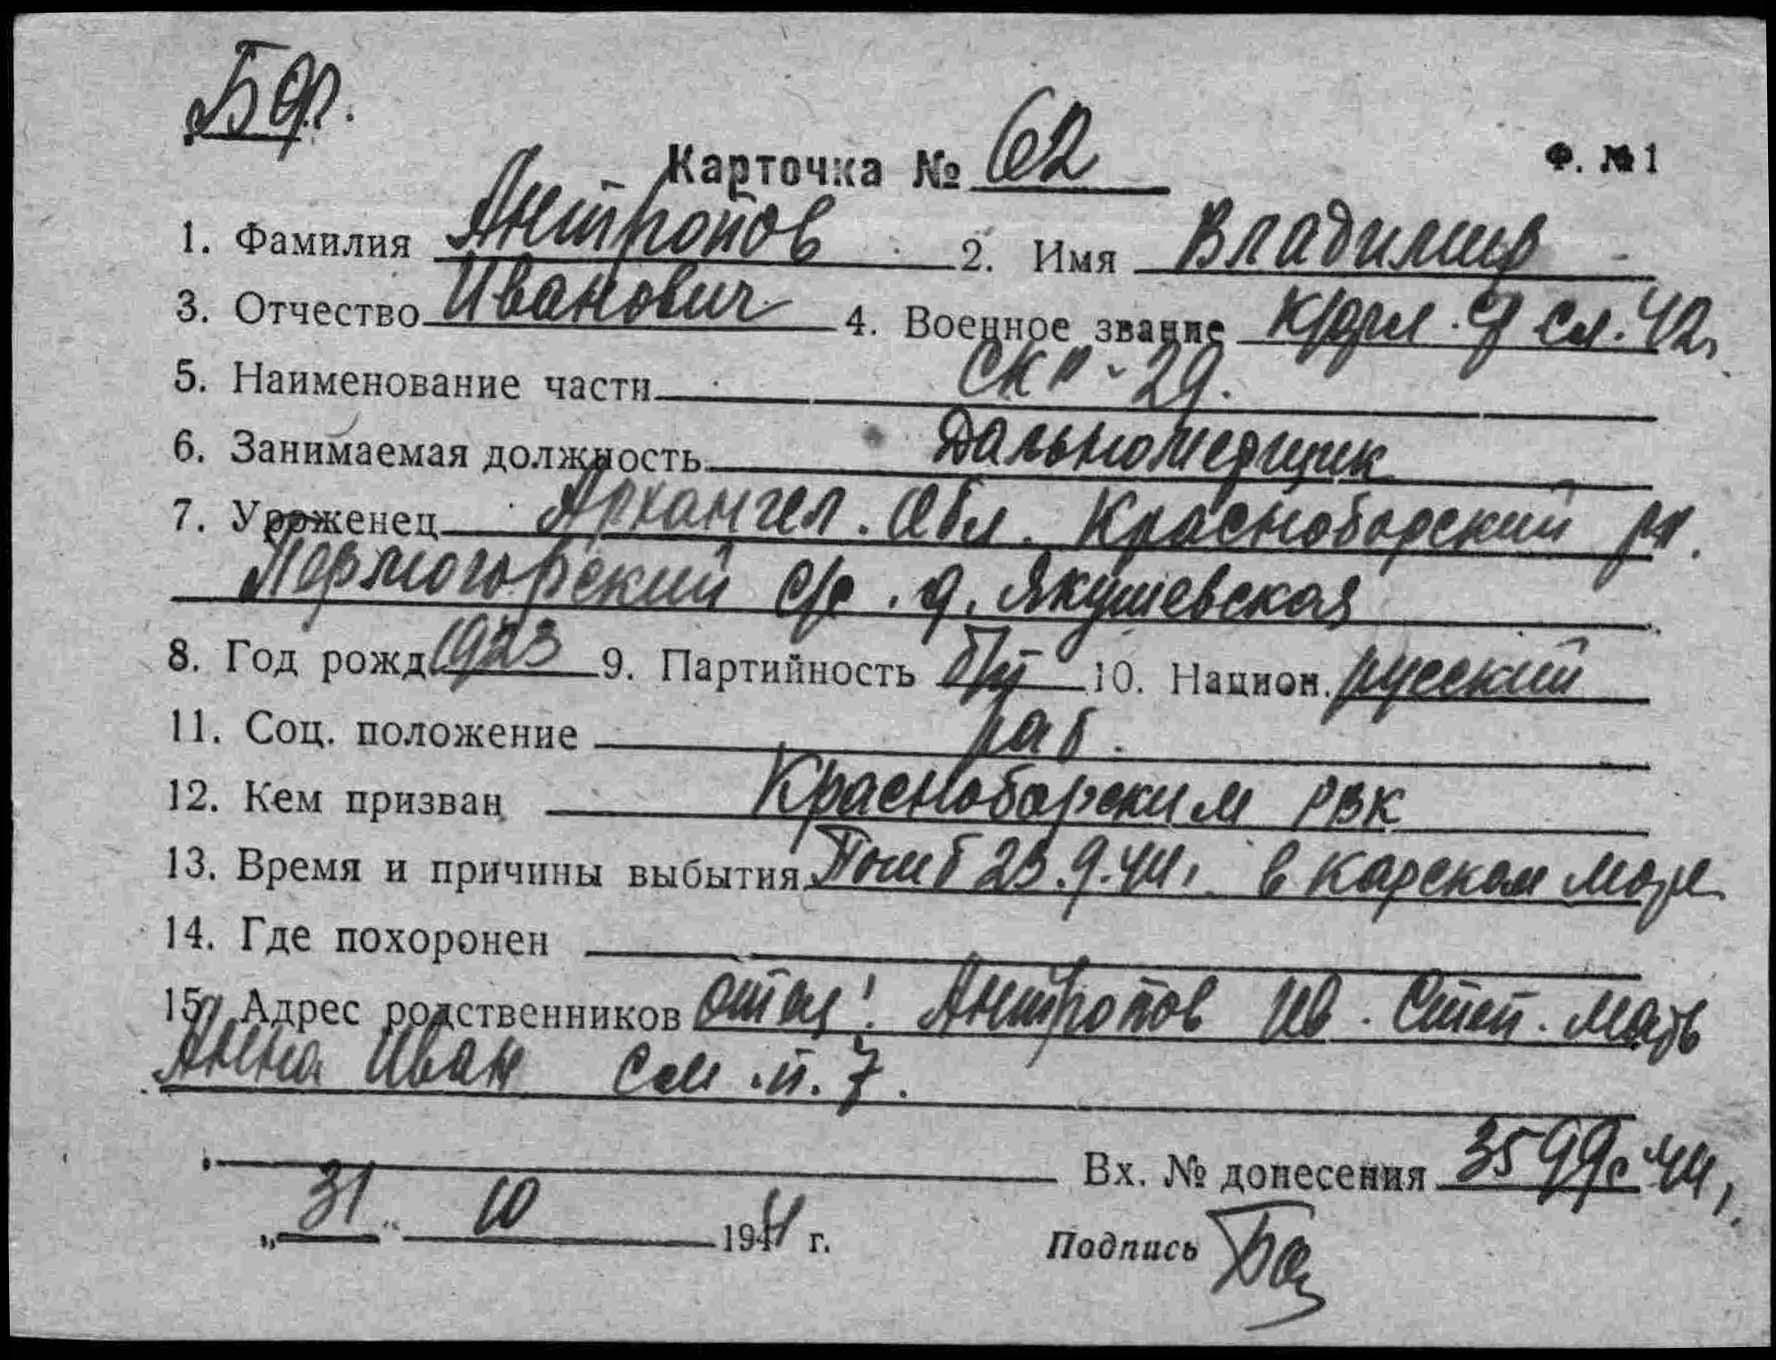 БФ.
Карточка № 62
Ф. № 1
1. Фамилия Антропов 2. Имя Владимир
3. Отчество Иванович 4. Военное звание кр/фл. Ф сл. 42г
5. Наименование части СКР-29.
6. Занимаемая должность Дальномерщик
7. Уроженец Архангел. Обл. Красноборский рн.
Пермогорский с/с. д. Якушевская
8. Год рожд 1923 9. Партийность б/п 10. Национ. русский
11. Соц. положение раб.
12. Кем призван Красноборским РВК
13. Время и причины выбытия Погиб 23.9.44г. в Карском море
14. Где похоронен
15. Адрес родственников отец: Антропов Ив. Степ. мать
Анна Иван см. п. 7.
Вх. № донесения 3599с 44г.
„31" 10 1944 г.
Подпись